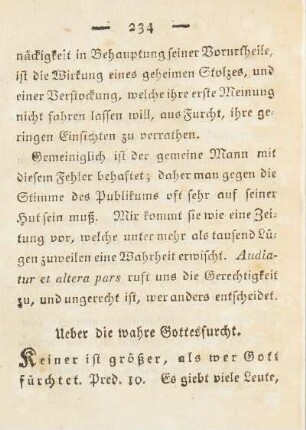 — 234 —
näckigkeit in Behauptung seiner Vorurtheile,
ist die Wirkung eines geheimen Stolzes, und
einer Verstockung, welche ihre erste Meinung
nicht fahren lassen will, aus Furcht, ihre ge-
ringen Einsichten zu verrathen.
Gemeiniglich ist der gemeine Mann mit
diesem Fehler behaftet; daher man gegen die
Stimme des Publikums oft sehr auf seiner
Hut sein muß. Mir kommt sie wie eine Zei-
tung vor, welche unter mehr als tausend Lü-
gen zuweilen eine Wahrheit erwischt. Audia-
tur et altera pars ruft uns die Gerechtigkeit
zu, und ungerecht ist, wer anders entscheidet.
Ueber die wahre Gottesfurcht.
Keiner ist größer, als wer Gott
fürchtet. Pred. 10. Es giebt viele Leute,